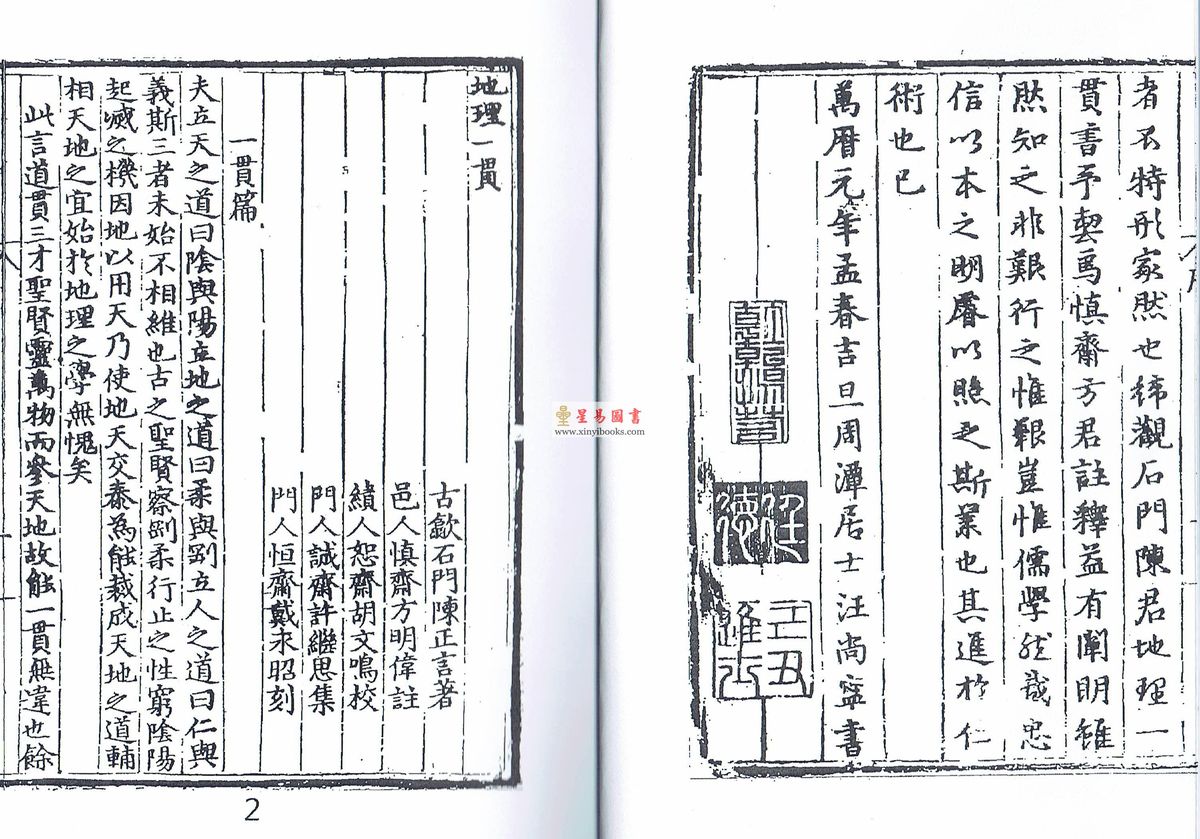 者不特形家然也締觀石門陳君地理一
貫書予契焉慎齋方君註釋益有闡明雖
然知之非艱行之惟艱豈惟儒學然哉忠
信以本之明睿以照之斯業也其進於仁
術也已
萬曆元年孟春吉旦周潭居士汪尚寧書
地理一貫
古歙石門陳正言著
邑人慎齋方明偉註
績人恕齋胡文鳴校
門人誠齋許繼思集
門人恒齋戴來昭刻
一貫篇
夫立天之道曰陰與陽立地之道曰柔與剛立人之道曰仁與
義斯三者未始不相維也古之聖賢察剛柔行止之性窮陰陽
起滅之機因地以用天乃使地天交泰為能裁成天地之道輔
相天地之宜始於地理之學無愧矣
此言道貫三才聖賢靈萬物而參天地故能一貫無違也餘
2
星易圖書
www.xinyibooks.com